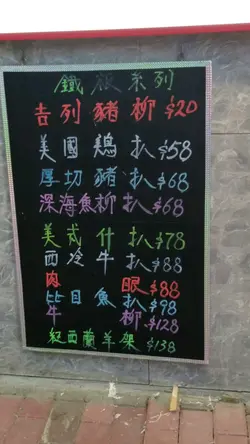 鐵板系列
吉列豬柳$20
美國鷄扒$58
厚切豬扒$68
深海魚柳扒$68
美式什扒$78
西冷牛扒$88
肉眼$88
比目魚扒$98
牛柳$128
紅西蘭羊架$138